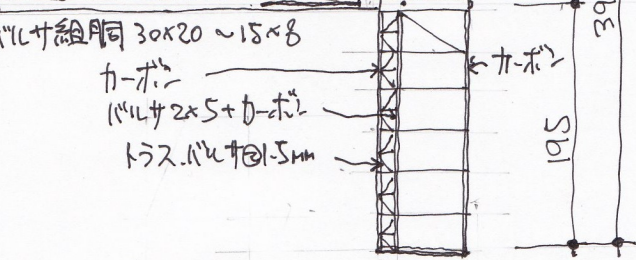 バルサ組胴 30×20 ~ 15×8
カーボン
カーボン
バルサ2×5+カーボン
トラス.バルサ□1.5mm
195
39